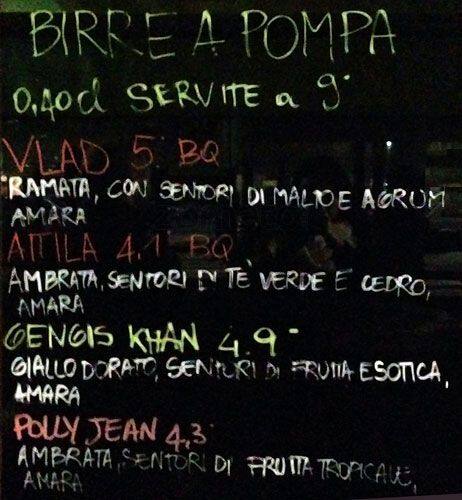 BIRRE A POMPA
0,40cl SERVITE a 9°
VLAD 5° BQ
RAMATA, CON SENTORI DI MALTO E AGRUM
AMARA
ATTILA 4.1° BQ
AMBRATA, SENTORI DI TÈ VERDE E CEDRO,
AMARA
GENGIS KHAN 4.9°
GIALLO DORATO, SENTORI DI FRUTTA ESOTICA,
AMARA
POLLY JEAN 4,3°
AMBRATA, SENTORI DI FRUTTA TROPICALE,
AMARA